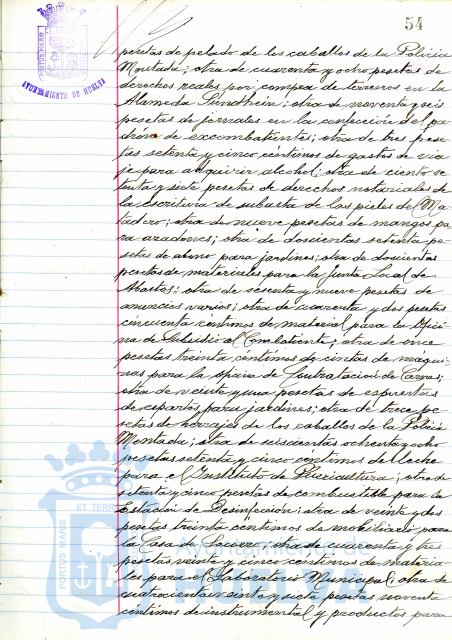 54
AYUNTAMIENTO DE HUELVA
pesetas de pelado de los caballos de la Policia
Montada; otra de cuarenta y ocho pesetas de
derechos reales por compra de terrenos en la
Alameda Sundheim; otra de noventa y seis
pesetas de jornales en la confección del pa-
drón de excombatientes; otra de tres pese-
tas setenta y cinco céntimos de gastos de via-
je para adquirir alcohol; otra de ciento se-
tenta y siete pesetas de derechos notariales de
la escritura de subasta de las pieles del Ma-
tadero; otra de nueve pesetas de mangos pa-
ra azadones; otra de doscientas setenta pe-
setas de abono para jardines; otra de doscientas
pesetas de materiales para la Junta Local de
Abastos; otra de sesenta y nueve pesetas de
anuncios varios; otra de cuarenta y dos pesetas
cincuenta céntimos de material para la Ofici-
na de Subsidio al Combatiente; otra de once
pesetas treinta céntimos de cintas de máqui-
nas para la de Contratación de Carnes;
otra de veinte y una pesetas de espuertas
de esparto para jardines; otra de trece pe-
setas de herraje de los caballos de la Policia
Montada; otra de seiscientas ochenta y ocho
pesetas setenta y cinco céntimos de leche
para el Instituto de Puericultura; otra de
setenta y cinco pesetas de combustible para la
Estación de Desinfección; otra de veinte y dos
pesetas treinta céntimos de mobiliario para
la Casa de Socorro; otra de cuarenta y tres
pesetas veinte y cinco céntimos de materia-
les para el Laboratorio Municipal; otra de
cuatrocientas veinte y siete pesetas noventa
céntimos de instrumental y productos para
PORTUS MARIS ET TERRAE
Ayuntamiento de
HUELVA